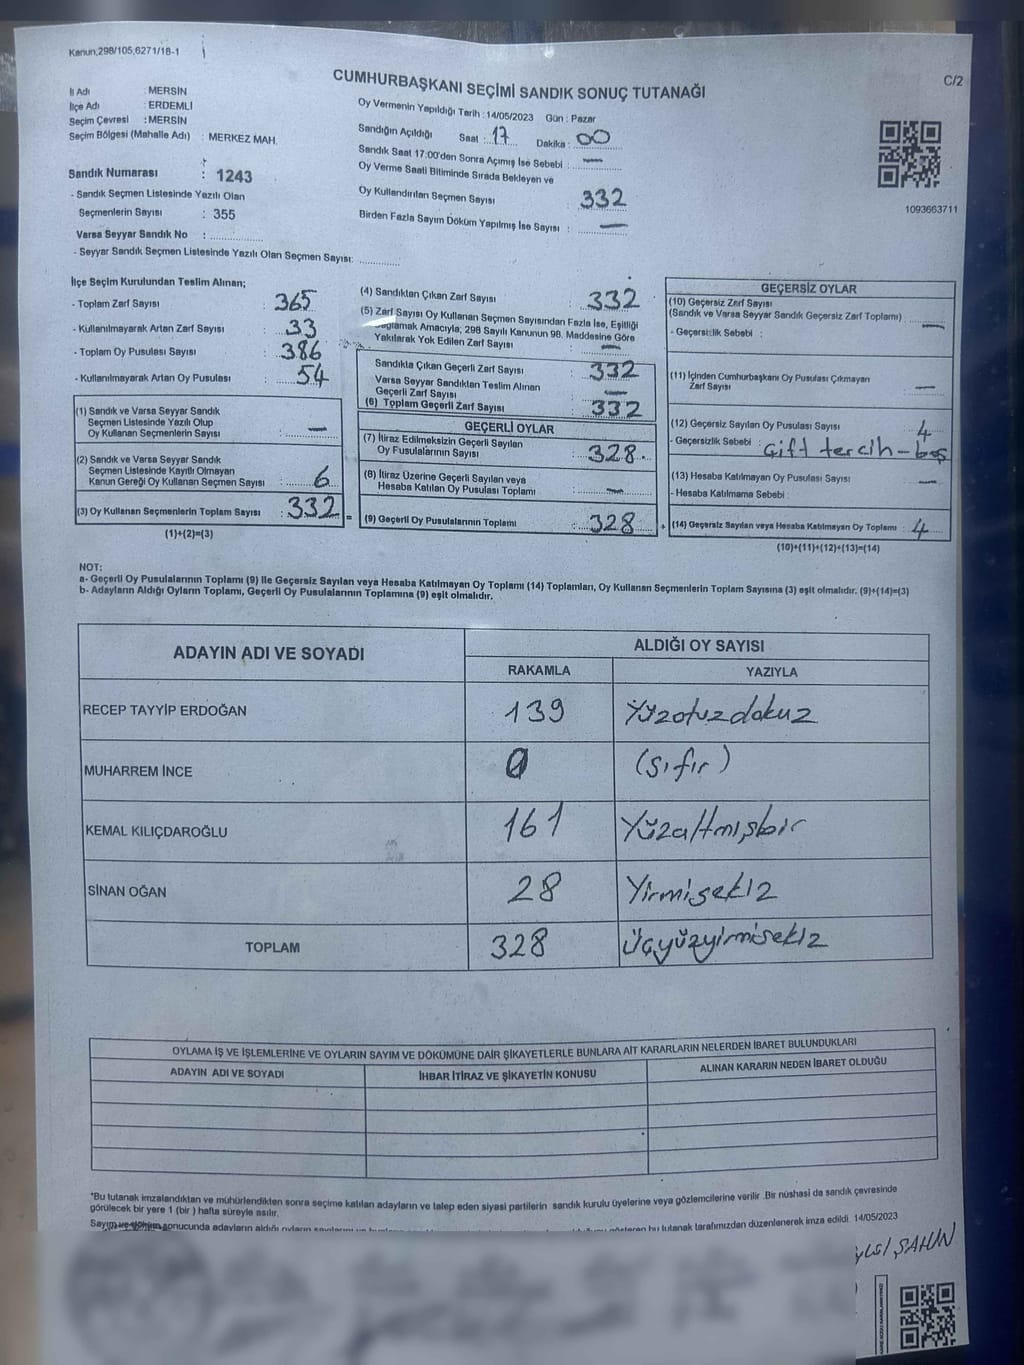 Kanun,298/105,6271/18-1
C/2
CUMHURBAŞKANI SEÇİMİ SANDIK SONUÇ TUTANAĞI
İl Adı : MERSİN
İlçe Adı : ERDEMLİ
Seçim Çevresi : MERSİN
Seçim Bölgesi (Mahalle Adı) : MERKEZ MAH.
Sandık Numarası : 1243
- Sandık Seçmen Listesinde Yazılı Olan
Seçmenlerin Sayısı : 355
Varsa Seyyar Sandık No :
- Seyyar Sandık Seçmen Listesinde Yazılı Olan Seçmen Sayısı:
Oy Vermenin Yapıldığı Tarih : 14/05/2023 Gün : Pazar
Sandığın Açıldığı Saat : 17 Dakika : 00
Sandık Saat 17:00'den Sonra Açımış İse Sebebi : —
Oy Verme Saati Bitiminde Sırada Bekleyen ve
Oy Kullandırılan Seçmen Sayısı 332
Birden Fazla Sayım Döküm Yapılmış İse Sayısı : —
1093663711
İlçe Seçim Kurulundan Teslim Alınan;
- Toplam Zarf Sayısı : 365
- Kullanılmayarak Artan Zarf Sayısı : 33
- Toplam Oy Pusulası Sayısı : 386
- Kullanılmayarak Artan Oy Pusulası : 54
(1) Sandık ve Varsa Seyyar Sandık
Seçmen Listesinde Yazılı Olup
Oy Kullanan Seçmenlerin Sayısı : —
(2) Sandık ve Varsa Seyyar Sandık
Seçmen Listesinde Kayıtlı Olmayan
Kanun Gereği Oy Kullanan Seçmen Sayısı : 6
(3) Oy Kullanan Seçmenlerin Toplam Sayısı : 332 =
(1)+(2)=(3)
(4) Sandıktan Çıkan Zarf Sayısı : 332
(5) Zarf Sayısı Oy Kullanan Seçmen Sayısından Fazla İse, Eşitliği
Sağlamak Amacıyla; 298 Sayılı Kanunun 98. Maddesine Göre
Yakılarak Yok Edilen Zarf Sayısı : —
Sandıkta Çıkan Geçerli Zarf Sayısı : 332
Varsa Seyyar Sandıktan Teslim Alınan
Geçerli Zarf Sayısı : —
(6) Toplam Geçerli Zarf Sayısı : 332
GEÇERLİ OYLAR
(7) İtiraz Edilmeksizin Geçerli Sayılan
Oy Pusulalarının Sayısı : 328
(8) İtiraz Üzerine Geçerli Sayılan veya
Hesaba Katılan Oy Pusulası Toplamı : —
(9) Geçerli Oy Pusulalarının Toplamı : 328 +
GEÇERSİZ OYLAR
(10) Geçersiz Zarf Sayısı
(Sandık ve Varsa Seyyar Sandık Geçersiz Zarf Toplamı) : —
- Geçersizlik Sebebi :
(11) İçinden Cumhurbaşkanı Oy Pusulası Çıkmayan
Zarf Sayısı : —
(12) Geçersiz Sayılan Oy Pusulası Sayısı : 4
- Geçersizlik Sebebi : Çift tercih - boş
(13) Hesaba Katılmayan Oy Pusulası Sayısı : —
- Hesaba Katılmama Sebebi :
(14) Geçersiz Sayılan veya Hesaba Katılmayan Oy Toplamı : 4
(10)+(11)+(12)+(13)=(14)
NOT:
a- Geçerli Oy Pusulalarının Toplamı (9) ile Geçersiz Sayılan veya Hesaba Katılmayan Oy Toplamı (14) Toplamları, Oy Kullanan Seçmenlerin Toplam Sayısına (3) eşit olmalıdır. (9)+(14)=(3)
b- Adayların Aldığı Oyların Toplamı, Geçerli Oy Pusulalarının Toplamına (9) eşit olmalıdır.
ADAYIN ADI VE SOYADI ALDIĞI OY SAYISI
RAKAMLA YAZIYLA
RECEP TAYYİP ERDOĞAN 139 Yüzotuzdokuz
MUHARREM İNCE 0 (sıfır)
KEMAL KILIÇDAROĞLU 161 Yüzaltmışbir
SİNAN OĞAN 28 Yirmisekiz
TOPLAM 328 Üçyüzyirmisekiz
OYLAMA İŞ VE İŞLEMLERİNE VE OYLARIN SAYIM VE DÖKÜMÜNE DAİR ŞİKAYETLERLE BUNLARA AİT KARARLARIN NELERDEN İBARET BULUNDUKLARI
ADAYIN ADI VE SOYADI İHBAR İTİRAZ VE ŞİKAYETİN KONUSU ALINAN KARARIN NEDEN İBARET OLDUĞU
"Bu tutanak imzalandıktan ve mühürlendikten sonra seçime katılan adayların ve talep eden siyasi partilerin sandık kurulu üyelerine veya gözlemcilerine verilir .Bir nüshası da sandık çevresinde
görülecek bir yere 1 (bir ) hafta süreyle asılır.
Sayım ve döküm sonucunda adayların aldığı oyların bu tutanak tarafımızdan düzenlenerek imza edildi. 14/05/2023
ŞAHİN